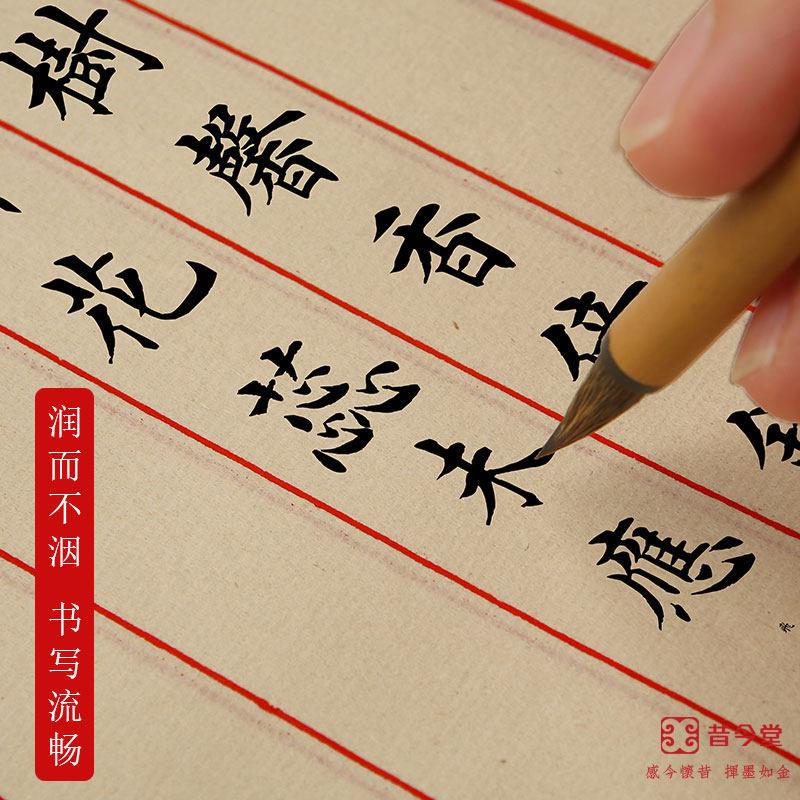 樹馨香
花蕊未應
润而不洇 书写流畅
昔今堂
感今懷昔 揮墨如金